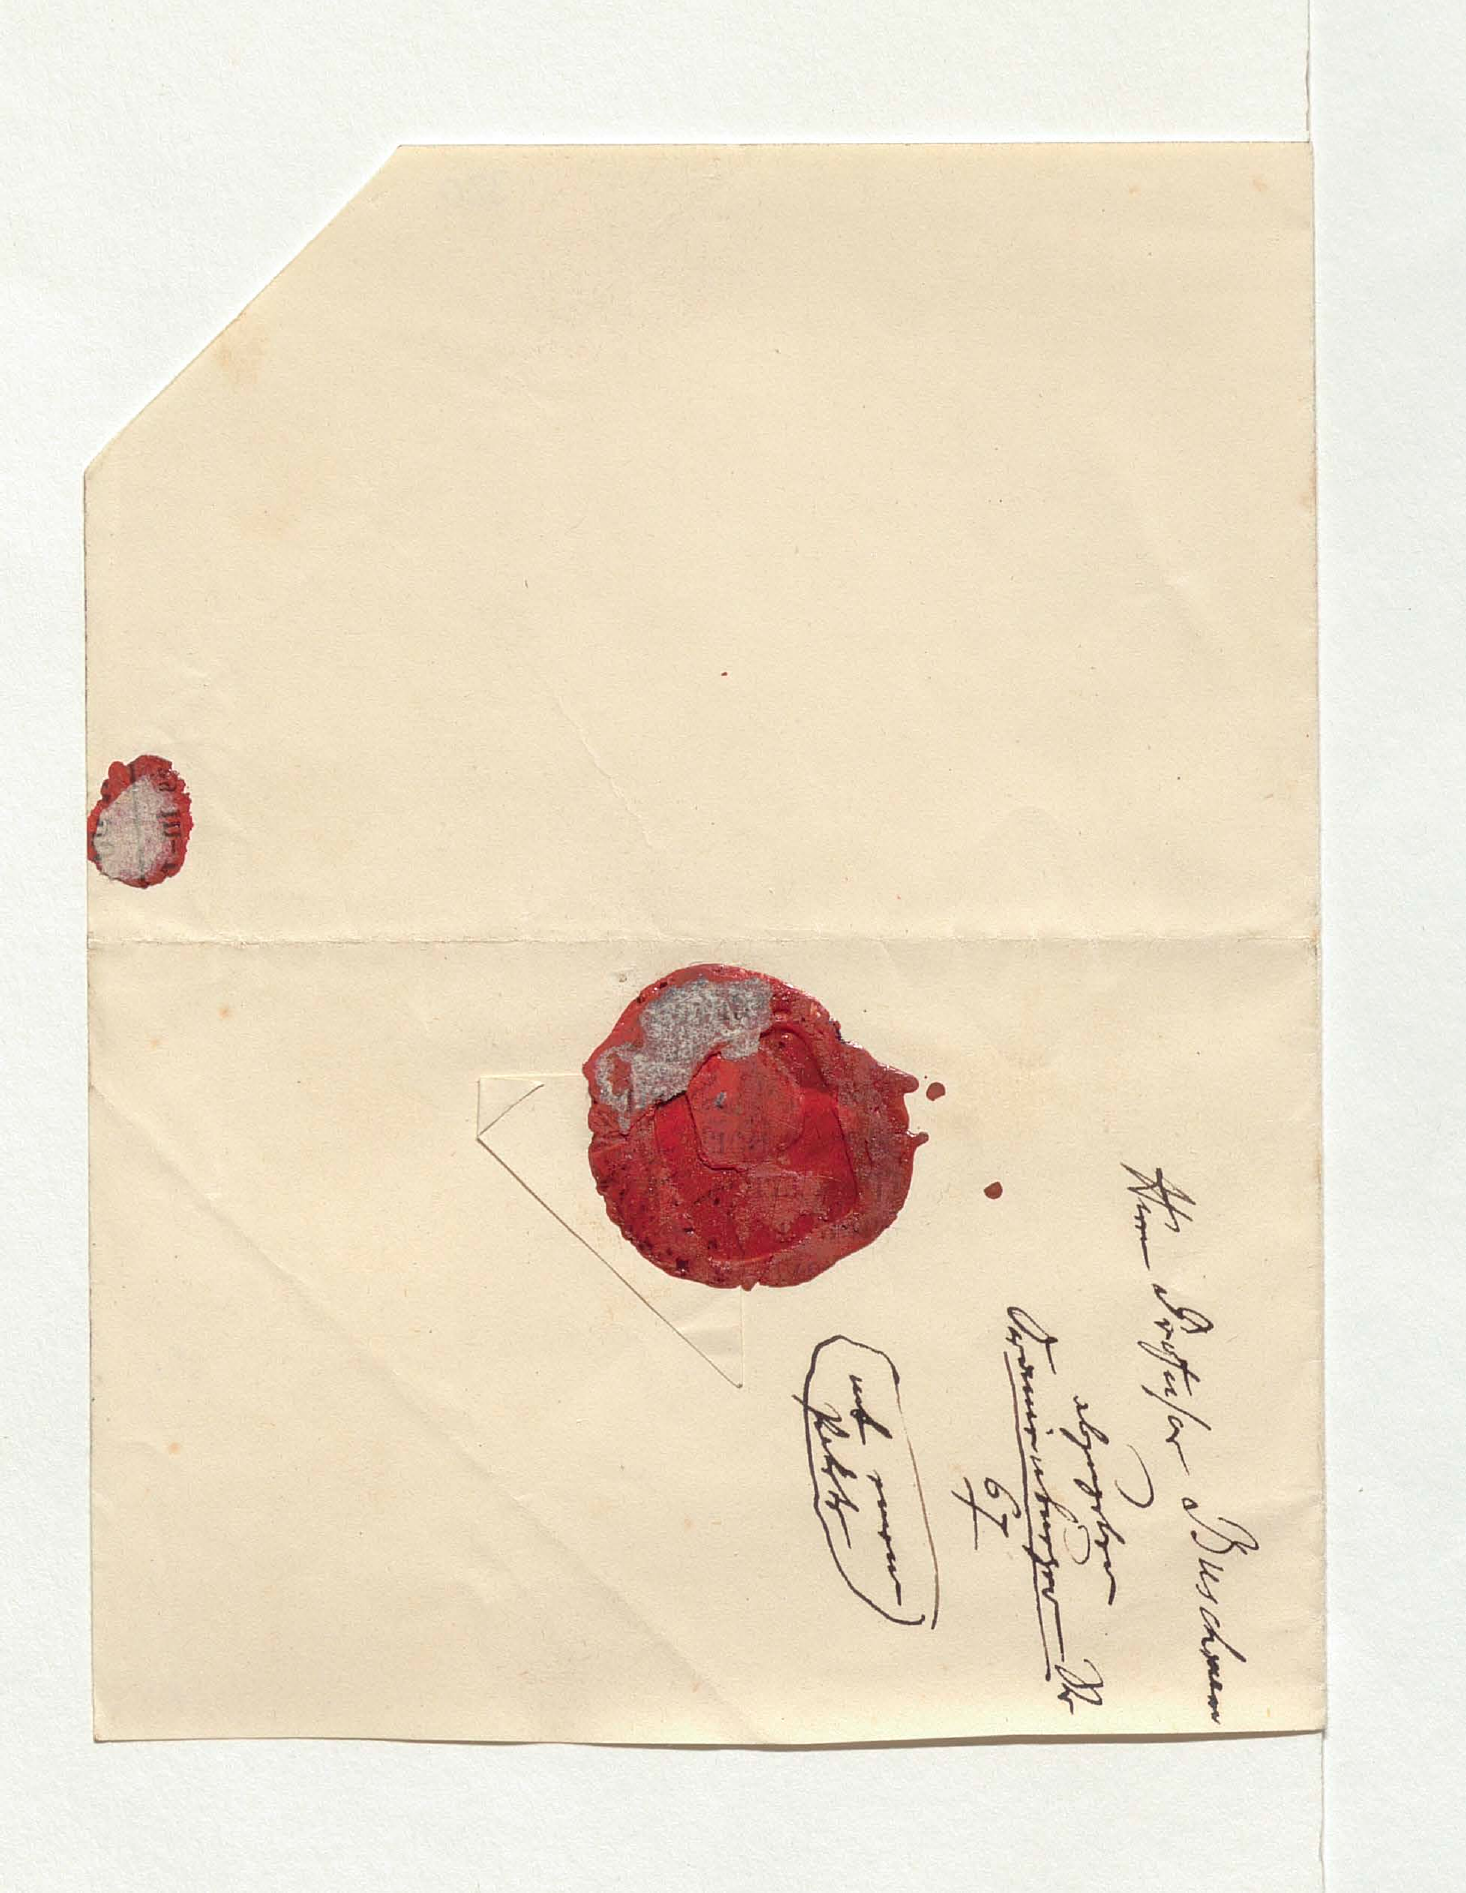 Herrn Professor Buschmann
abzugeben
Oranienburger Str
67
mit einem
Packete